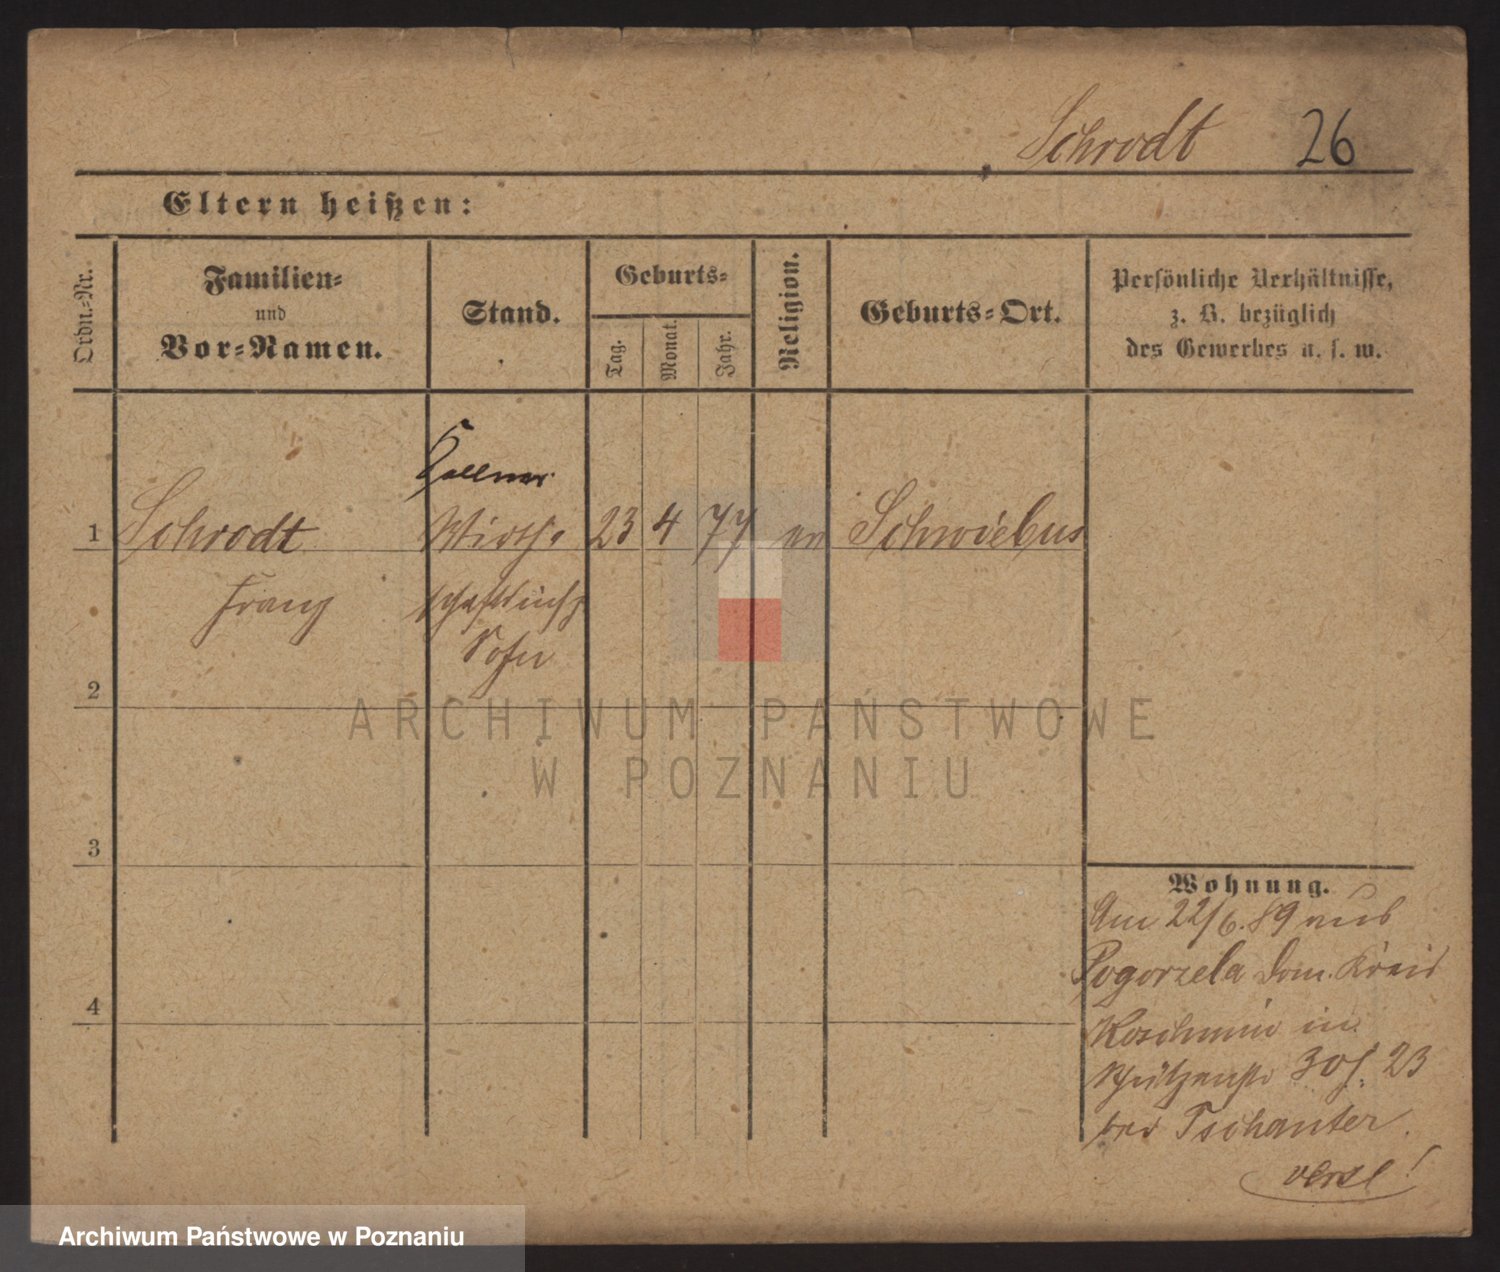 Schrodt 26
Eltern heißen:
Ordn.=Nr.
Familien=
und
Vor=Namen.
Stand.
Geburts=
Tag.
Monat.
Jahr.
Religion.
Geburts=Ort.
Persönliche Verhältnisse,
z. B. bezüglich
des Gewerbes u. s. w.
Kellner
1 Schrodt Wirth= 23 4 77 ev Schwiebus
Franz schafts
Sohn
2
3
4
Wohnung.
Am 22/6.89 aus
Pogorzela Dom. Kreis
Koschmin in
Schützenstr 30 f. 23
bei Tschanter.
ARCHIWUM PAŃSTWOWE
W POZNANIU
Archiwum Państwowe w Poznaniu